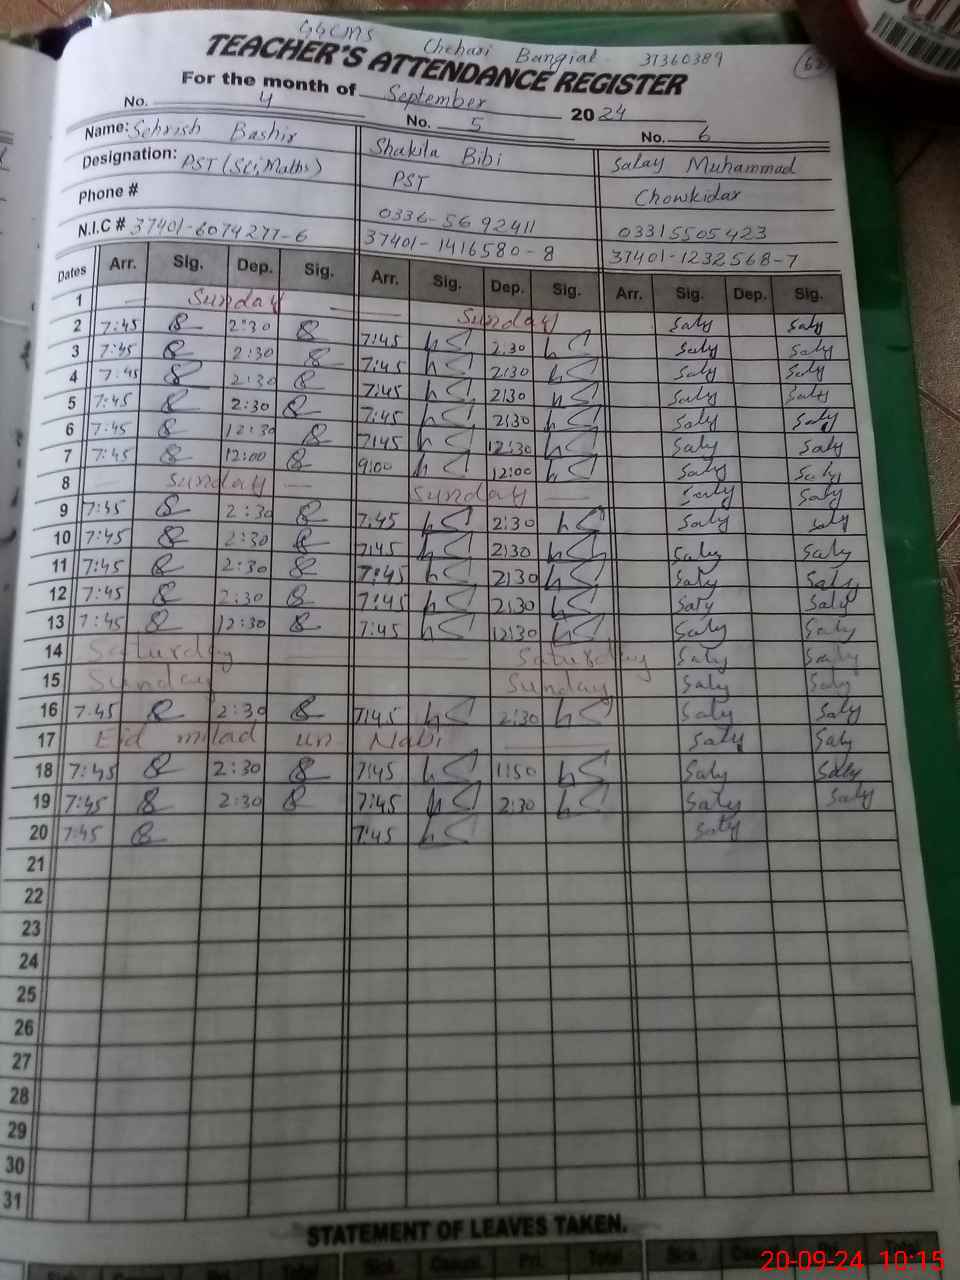 GGCMS Chehari Bangial 37360389
TEACHER'S ATTENDANCE REGISTER
For the month of September 2024
No. 4 No. 5 No. 6
Name: Sehrish Bashir Shakila Bibi Salay Muhammad
Designation: PST (Sci, Maths) PST Chowkidar
Phone # 0336-5692411 03315505423
N.I.C # 37401-6074277-6 37401-1416580-8 37401-1232568-7
Dates Arr. Sig. Dep. Sig. Arr. Sig. Dep. Sig. Arr. Sig. Dep. Sig.
1 Sunday Sunday Saly Saly
2 7:45 2:30 7:45 2:30 Saly Saly
3 7:45 2:30 7:45 2:30 Saly Saly
4 7:45 2:30 7:45 2:30 Saly Saly
5 7:45 2:30 7:45 2:30 Saly Saly
6 7:45 12:30 7:45 12:30 Saly Saly
7 7:45 12:00 9:00 12:00 Saly Saly
8 Sunday Sunday Saly Saly
9 7:45 2:30 7:45 2:30 Saly Saly
10 7:45 2:30 7:45 2:30 Saly Saly
11 7:45 2:30 7:45 2:30 Saly Saly
12 7:45 2:30 7:45 2:30 Saly Saly
13 7:45 12:30 7:45 12:30 Saly Saly
14 Saturday Saturday Saly Saly
15 Sunday Sunday Saly Saly
16 7:45 2:30 7:45 2:30 Saly Saly
17 Eid milad un Nabi Saly Saly
18 7:45 2:30 7:45 1:50 Saly Saly
19 7:45 2:30 7:45 2:30 Saly Saly
20 7:45 7:45 Saly
21
22
23
24
25
26
27
28
29
30
31
STATEMENT OF LEAVES TAKEN.
Sick. Casual. Pri. Total Sick. Casual Pri. Total
20-09-24 10:15